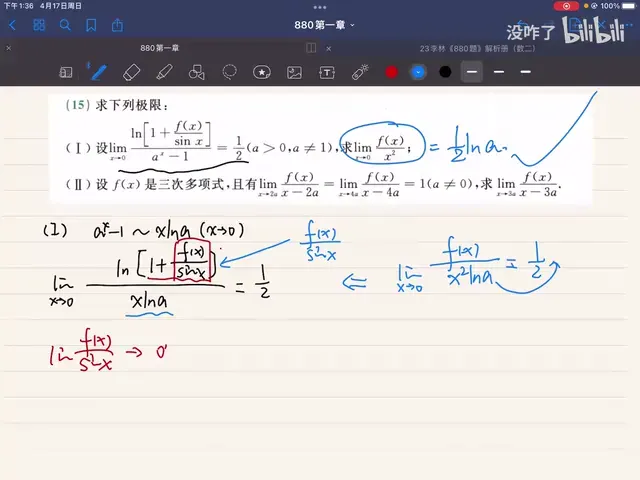 下午1:36 4月17日周日
100%
880第一章
没咋了 bilibili
880第一章
23李林《880题》解析册(数二)
(15) 求下列极限:
(Ⅰ) 设 lim_{x→0} ln[1+f(x)/sin x]/(a^x-1) = 1/2 (a>0,a≠1), 求 lim_{x→0} f(x)/x²; = 1/2 ln a.
(Ⅱ) 设 f(x) 是三次多项式,且有 lim_{x→2a} f(x)/(x-2a) = lim_{x→4a} f(x)/(x-4a) = 1(a≠0), 求 lim_{x→3a} f(x)/(x-3a).
(I) a^x-1 ~ xlna (x→0)
f(x)/sinx
lim_{x→0} ln[1+f(x)/sinx]/(xlna) = 1/2
⇐ lim_{x→0} f(x)/(x²lna) = 1/2
lim f(x)/sinx → 0